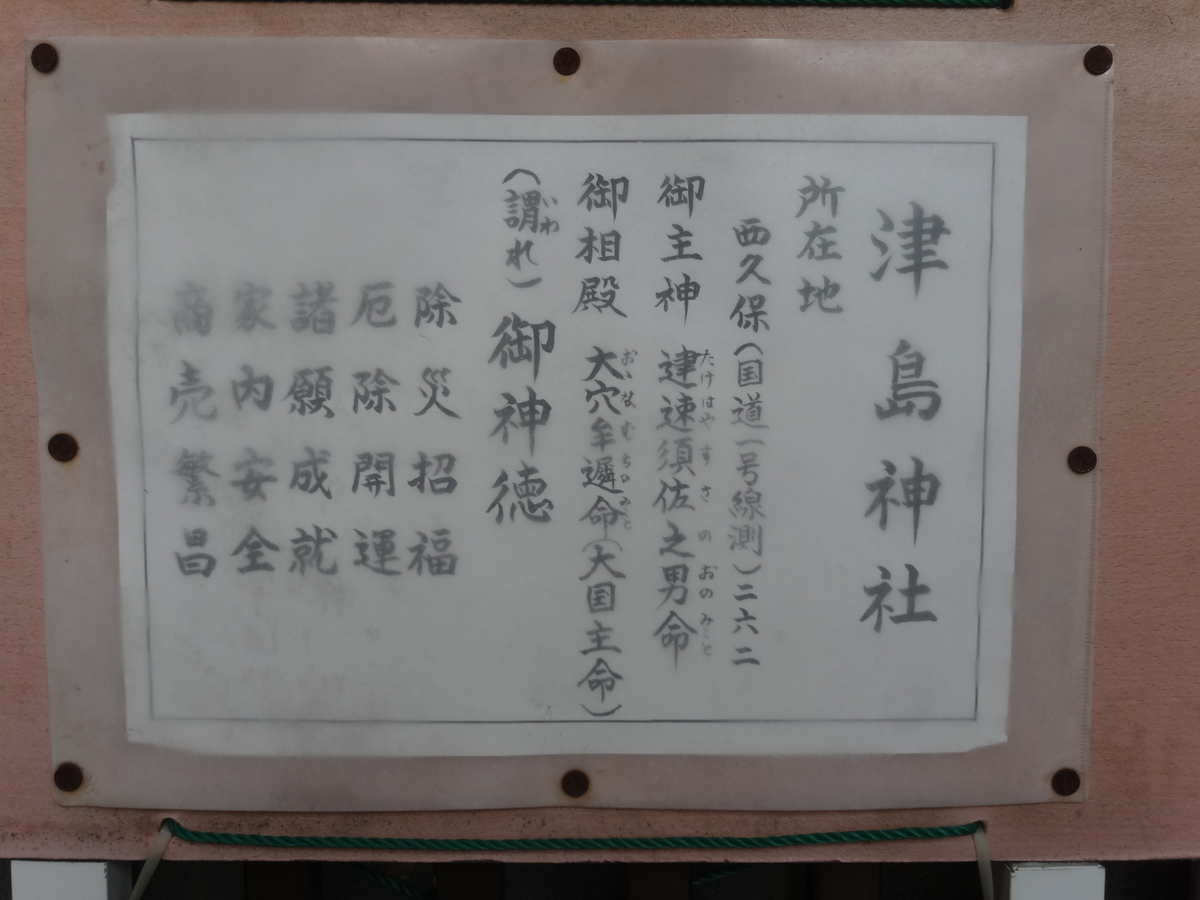 津島神社
所在地
西久保(国道一号線測)二六二
御主神 建速須佐之男命
たけはやすさのおのみこと
御相殿 大穴牟遲命(大国主命)
おゝなむちのみこと
(謂れ)御神徳
いわ
除災招福
厄除開運
諸願成就
家内安全
商売繁昌